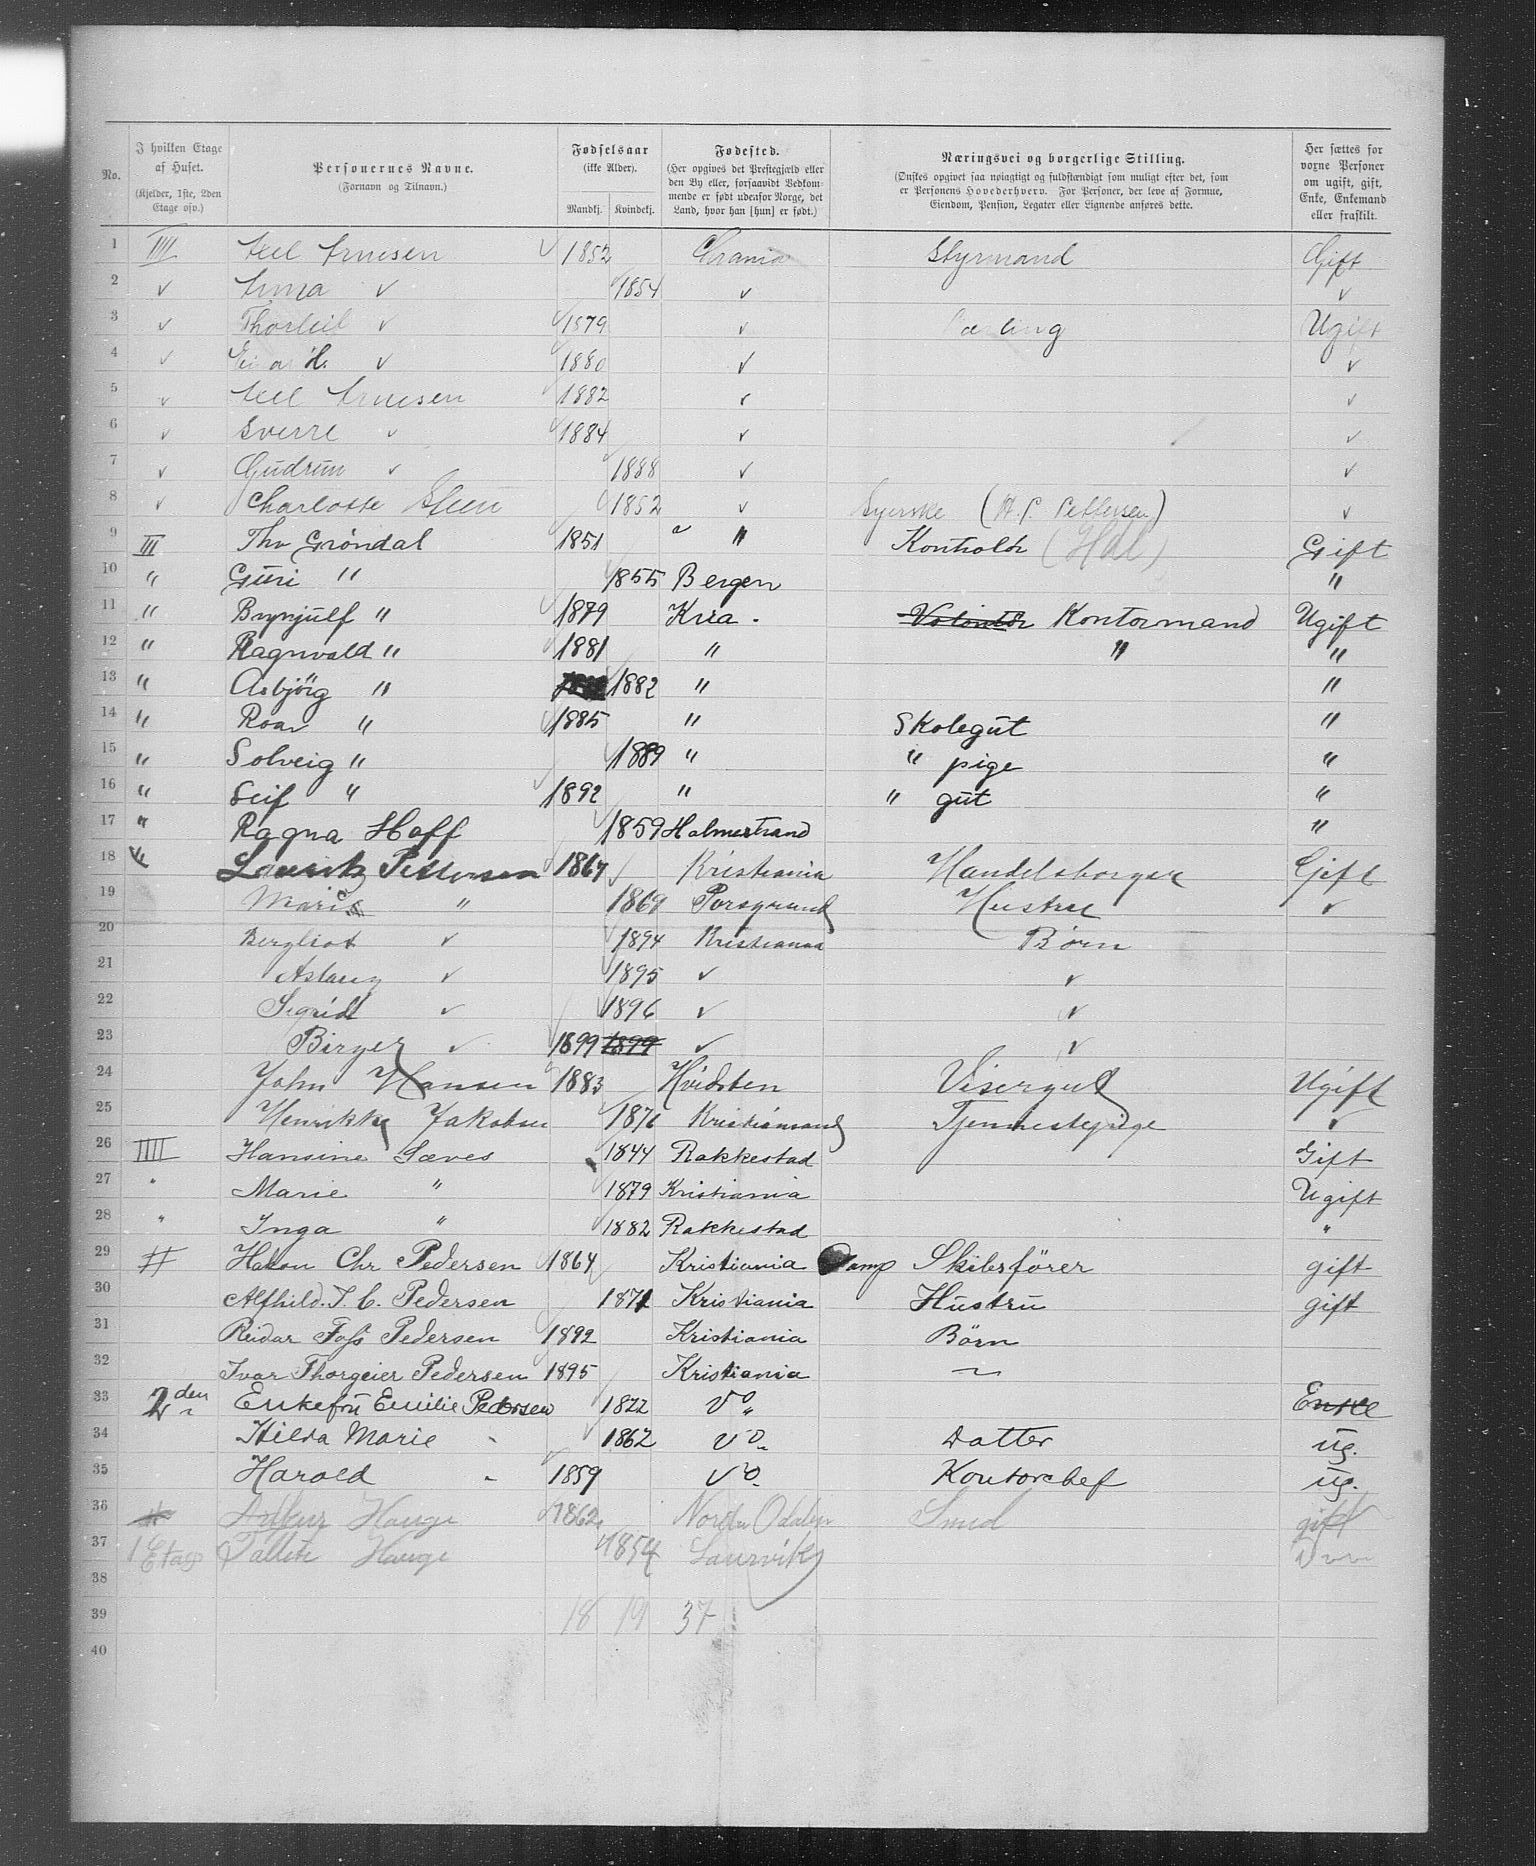 No.
I hvilken Etage af Huset.
(Kjelder, 1ste, 2den Etage osv.)
Personernes Navne.
(Fornavn og Tilnavn.)
Fødselsaar
(ikke Alder).
Mandkj. Kvindekj.
Fødested.
(Her opgives det Prestegjæld eller den By eller, forsaavidt Bedkommende er født udenfor Norge, det Land, hvor han [hun] er født.)
Næringsvei og borgerlige Stilling.
(Ønskes opgivet saa nøiagtigt og fuldstændigt som muligt efter det, som er Personens Hovederhverv. For Personer, der leve af Formue, Eiendom, Pension, Legater eller Lignende anføres dette.
Her sættes for vorne Personer om ugift, gift, Enke, Enkemand eller fraskilt.
1 IIII 1852 Chrania Styrmand Gift
2 Anna 1854
3 Thorleif 1879 Ugift
4 1880
5 1882
6 Sverre 1884
7 Gudrun 1888
8 Charlotte Steen 1852 Syerske (H. P. Pettersen)
9 III Thv Grøndal 1851 " Kontrolör Gift
10 " Guri " 1855 Bergen "
11 " Brynjulf " 1879 Kria. Volontör Kontormand Ugift
12 " Ragnvald " 1881 " " "
13 " Asbjörg " 1882 " "
14 " Roar " 1885 " Skolegut "
15 " Solveig " 1889 " " pige "
16 " Leif " 1892 " " gut "
17 " Ragna Hoff 1859 Holmestrand "
18 Lauritz Pettersen 1867 Kristiania Handelsborger Gift
19 Marie " 1869 Porsgrund Hustru
20 Bergliot 1894 Kristiania Børn
21 Aslaug 1895
22 Sigrid 1896
23 Birger 1899 1899
24 John Hansen 1883 Hvidsten Visergut Ugift
25 Henrikke Jakobsen 1876 Kristiansand Tjenestepige
26 IIII Hansine Sæves 1844 Rakkestad Gift
27 " Marie " 1879 Kristiania Ugift
28 " Inga " 1882 Rakkestad "
29 II Hakon Chr Pedersen 1864 Kristiania Damp Skibsfører gift
30 Alfhild. I. C. Pedersen 1871 Kristiania Hustru gift
31 Reidar Foss Pedersen 1892 Kristiania Børn
32 Ivar Thorgeier Pedersen 1895 Kristiania
33 2den Enkefru Emilie Pedersen 1822 Enke
34 Hilda Marie 1862 Datter ug.
35 Harald 1859 Kontorchef ug.
36 Hauge 1862 Nordre Odalen Smed gift
37 1 Etage Hauge 1854 Laurvik
38
39 18 19 37
40